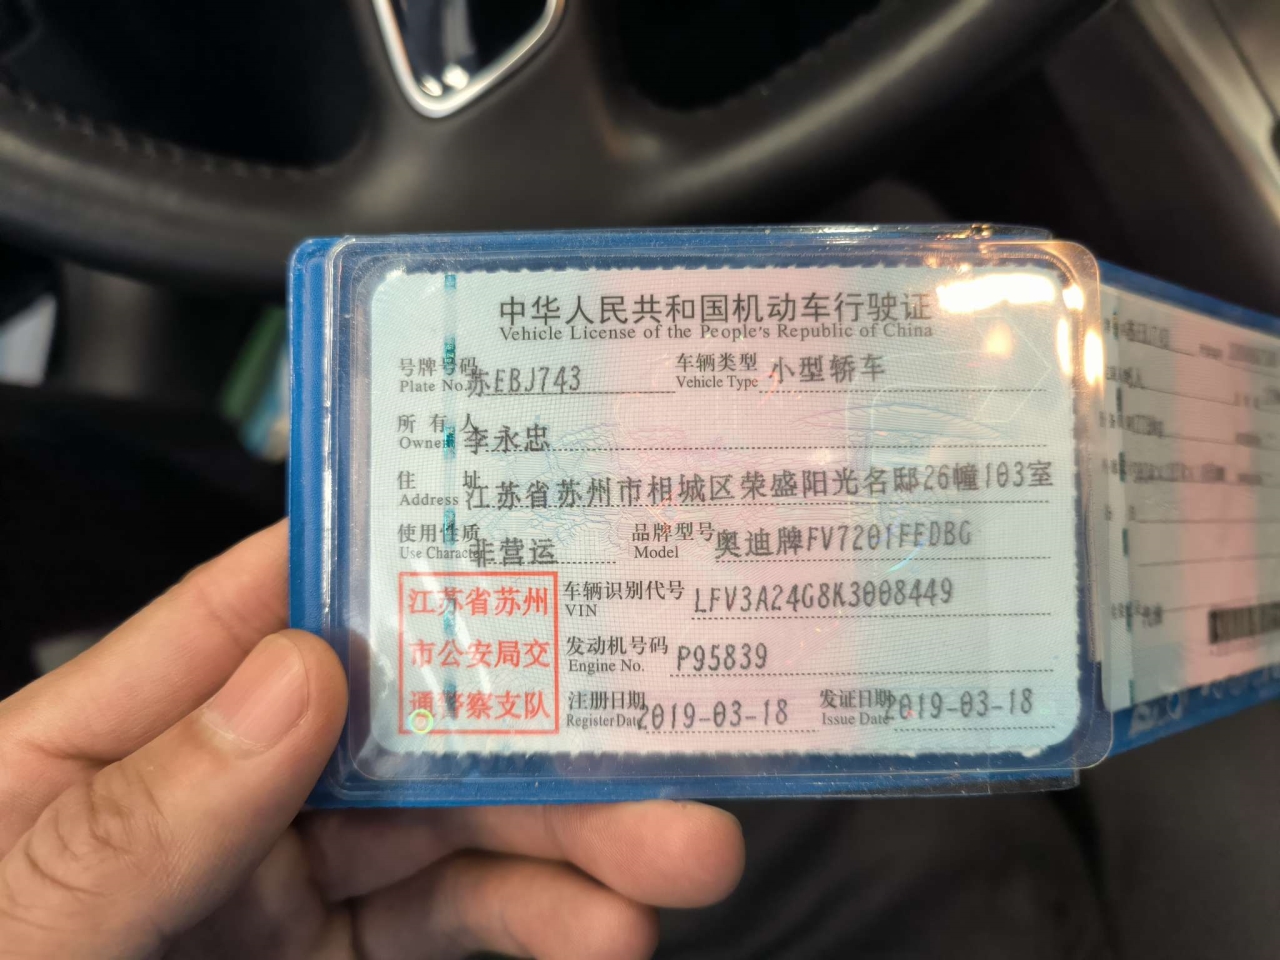 中华人民共和国机动车行驶证
Vehicle License of the People's Republic of China
号牌号码 苏EBJ743 车辆类型 小型轿车
Plate No. Vehicle Type
所有人 李永忠
Owner
住址 江苏省苏州市相城区荣盛阳光名邸26幢103室
Address
使用性质 非营运 品牌型号 奥迪牌FV7201FEDBG
Use Character Model
江苏省苏州
市公安局交
通警察支队
车辆识别代号 LFV3A24G8K3008449
VIN
发动机号码 P95839
Engine No.
注册日期 2019-03-18 发证日期 2019-03-18
Register Date Issue Date